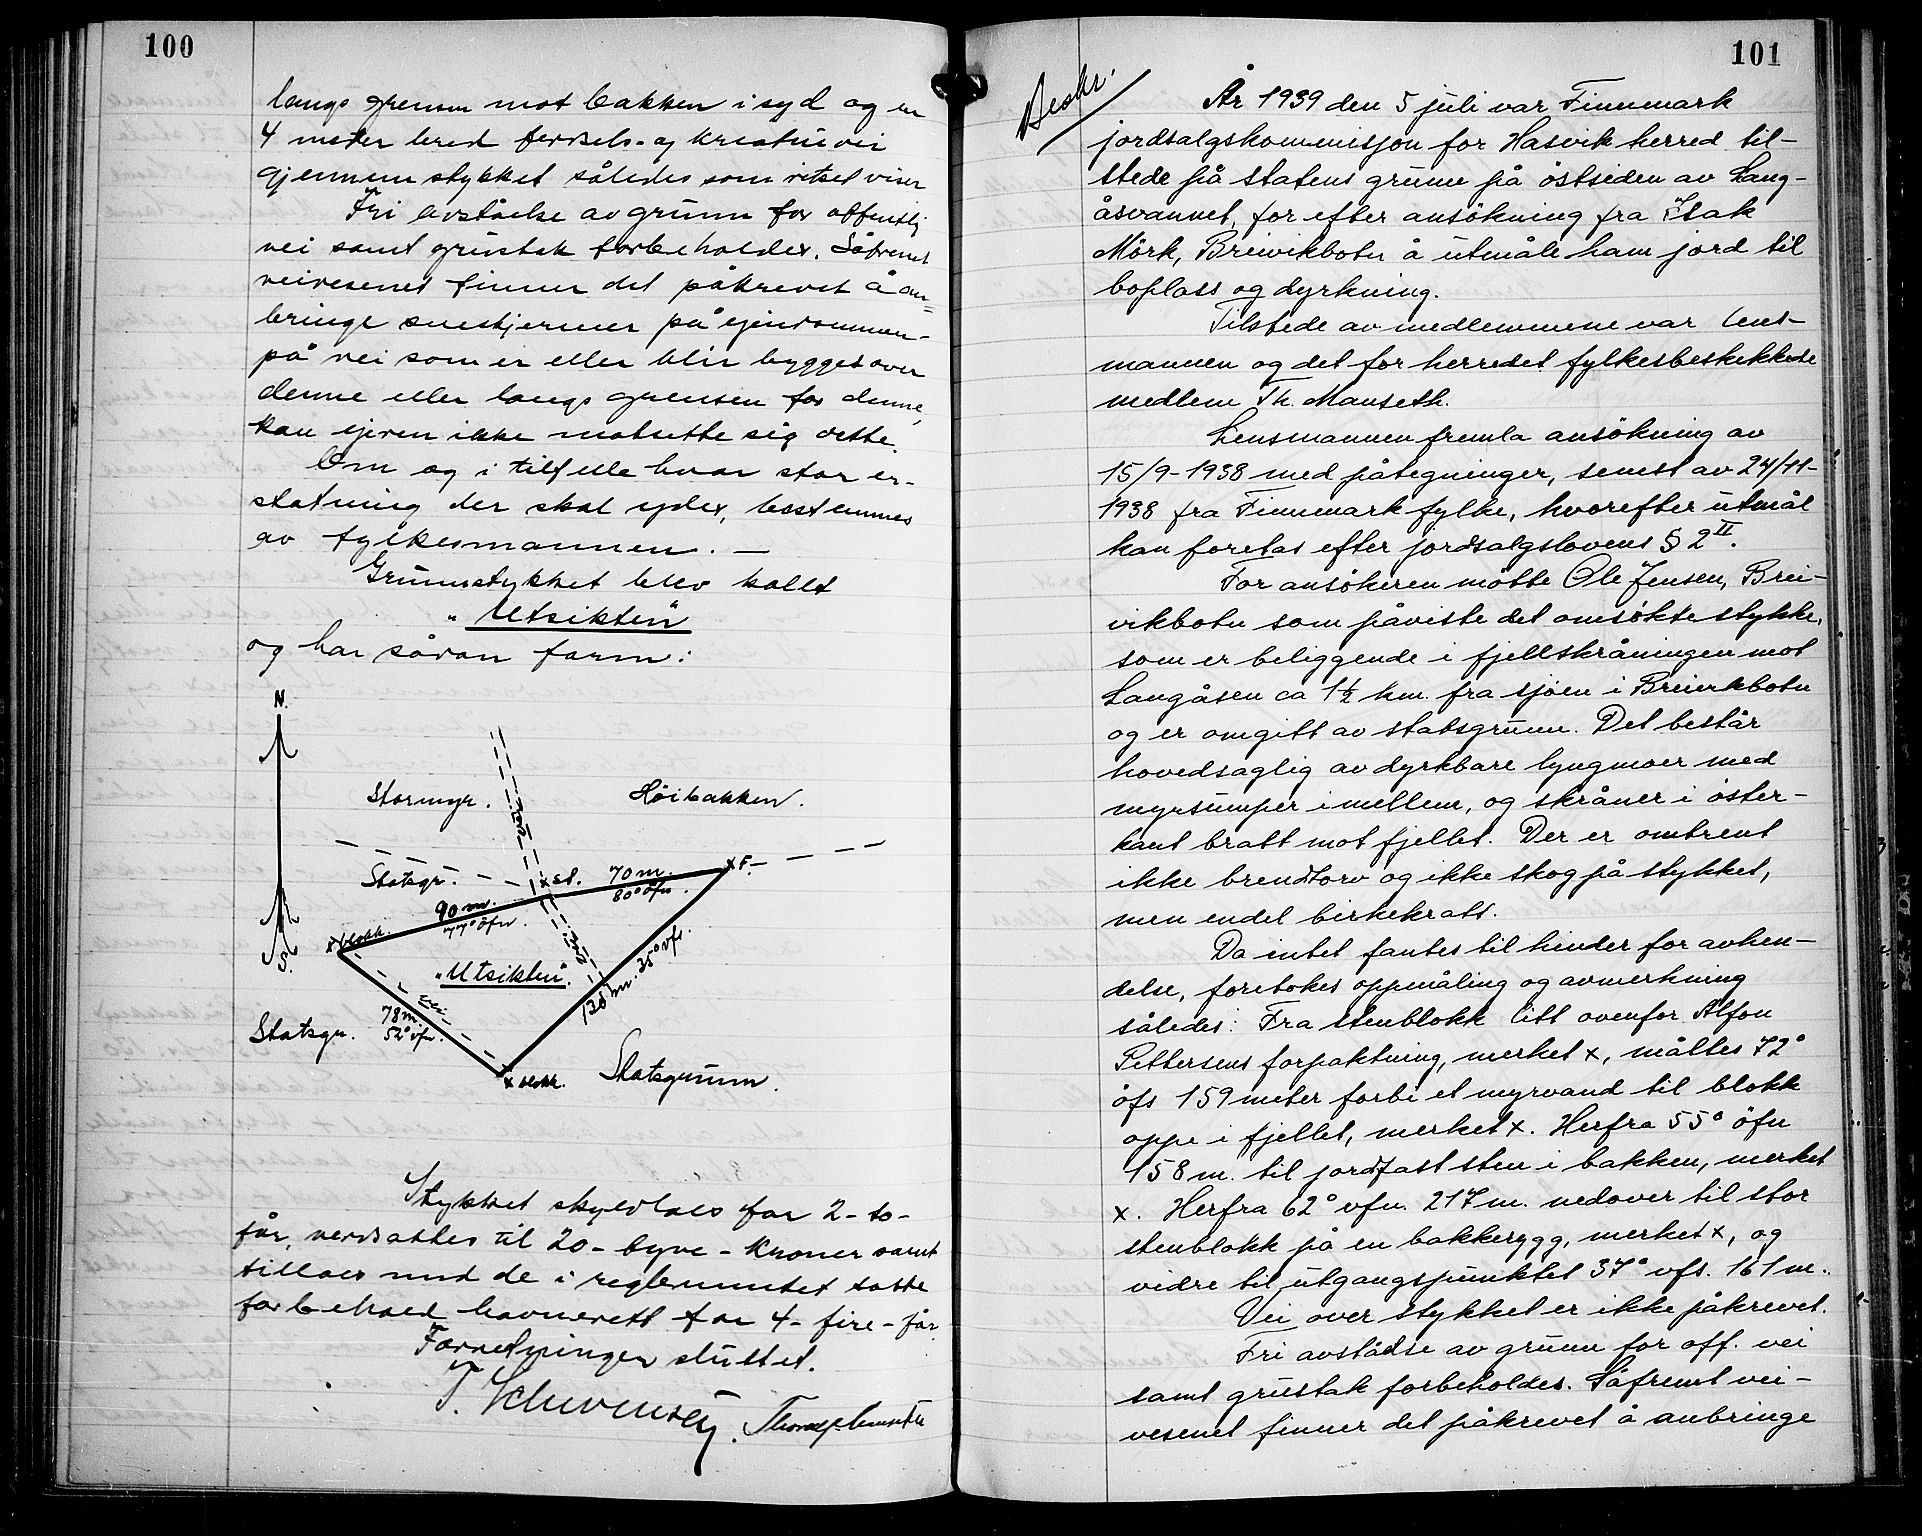 100
langs grensen mot bakken i syd og en
4 meter bred ferdsels- og kreaturvei
gjennem stykket således som ritset viser
Fri avståelse av grunn for offentlig
vei samt grustak forbeholdes. Såfremt
veivesenet finner det påkrevet å an=
bringe sneskjermer på eiendommen
på vei som er eller blir bygget over
denne eller langs grensen for denne,
kan eieren ikke motsette sig dette.
Om og i tilfelle hvor stor er-
statning der skal ydes, bestemmes
av fylkesmannen. —
Grunnstykket blev kallt
"Utsikten"
og har sådan form:
N.
Stormyr.
Höibakken.
vei
Statsgr.
x st.
70 m.
80° öfn.
x F.
90 m.
77° öfn.
x blokk.
vei
"Utsikten".
138 m. 35° vfs.
S.
vei
78 m.
52° vfn.
Statsgr.
x blokk.
Statsgrunn.
Stykket skyldlaes for 2-to-
får, verdsattes til 20-tyve-kroner samt
tillaes med de i reglementet tatte
forbehold havnerett for 4-fire-får.
Forretningen sluttet.
101
Beskr.
År 1939 den 5 juli var Finnmark
jordsalgskommisjon for Hasvik herred til-
stede på statens grunn på östsiden av Lang-
åsvannet, for efter ansökning fra Isak
Mörk, Breivikbotn å utmåle ham jord til
boplass og dyrkning.
Tilstede av medlemmene var lens-
mannen og det for herredet fylkesbeskikkede
medlem Th. Manseth.
Lensmannen fremla ansökning av
15/9-1938 med påtegninger, senest av 24/11-
1938 fra Finnmark fylke, hvorefter utmål
kan foretas efter jordsalgslovens § 2 II.
For ansökeren mötte Ole Jensen, Brei-
vikbotn som påviste det omsökte stykke,
som er beliggende i fjellskråningen mot
Langåsen ca 1½ km. fra sjöen i Breivikbotn
og er omgitt av statsgrunn. Det består
hovedsaglig av dyrkbare lyngmoer med
myrsumper imellem, og skråner i öster-
kant bratt mot fjellet. Der er omtrent
ikke brendtorv og ikke skog på stykket,
men endel birkekratt.
Da intet fantes til hinder for avhen-
delse, foretokes oppmåling og avmerkning
således: Fra stenblokk litt ovenfor Alfon
Pettersens forpaktning, merket x, måltes 72°
öfs 159 meter forbi et myrvand til blokk
oppe i fjellet, merket x. Herfra 55° öfn
158 m. til jordfast sten i bakken, merket
x. Herfra 62° vfn. 217 m. nedover til stor
stenblokk på en bakkerygg, merket x, og
vidre til utgangspunktet 37° vfs. 161 m.
Vei over stykket er ikke påkrevet.
Fri avståelse av grunn for off. vei
samt grustak forbeholdes. Såfremt vei-
vesenet finner det påkrevet å anbringe